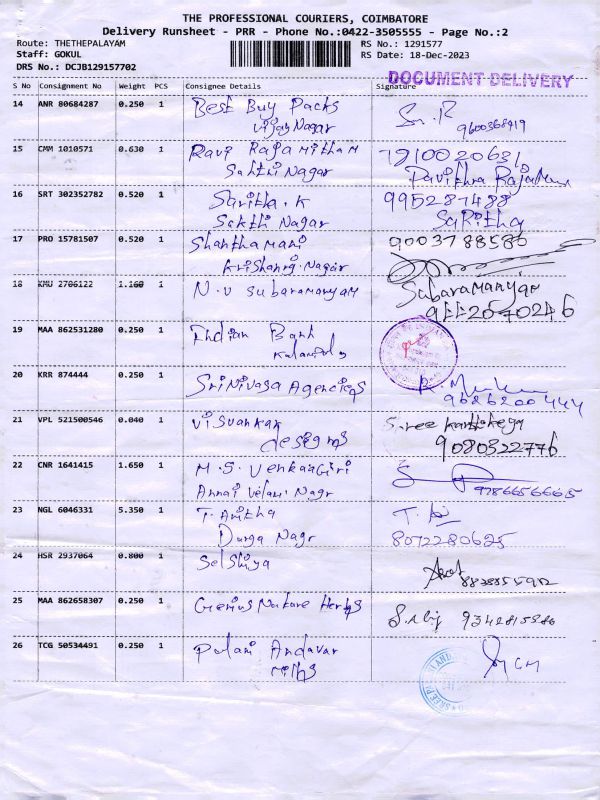 THE PROFESSIONAL COURIERS, COIMBATORE
Delivery Runsheet - PRR - Phone No.:0422-3505555 - Page No.:2
Route: THETHEPALAYAM
Staff: GOKUL
DRS No.: DCJB129157702
RS No.: 1291577
RS Date: 18-Dec-2023
DOCUMENT DELIVERY
S No Consignment No Weight PCS Consignee Details Signature
14 ANR 80684287 0.250 1 Best Buy Packs
Vijay Nagar
9600368419
15 CMM 1010571 0.630 1 Ravi Raja
Sakthi Nagar
7910020631
Pavithra
16 SRT 302352782 0.520 1 Saritha.K 995287488
Sakthi Nagar SaRitha
17 PRO 15781507 0.520 1 Shanthamani 9003788580
Nagar
18 KMU 2706122 1.160 1 N.V Subaramanyam Subaramanyam
19 MAA 862531280 0.250 1 Indian Bank
20 KRR 874444 0.250 1 Srinivasa Agencies
9626200444
21 VPL 521500546 0.040 1
designs 9080322776
22 CNR 1641415 1.650 1 M.S. Venkaagiri
Annai Velani Nagr 9786656665
23 NGL 6046331 5.350 1 T. Anitha T.
Durga Nagr 8072280625
24 HSR 2937064 0.800 1
25 MAA 862658307 0.250 1 Genius Nature Herbs 9342815980
26 TCG 50534491 0.250 1 Palani Andavar
Mills